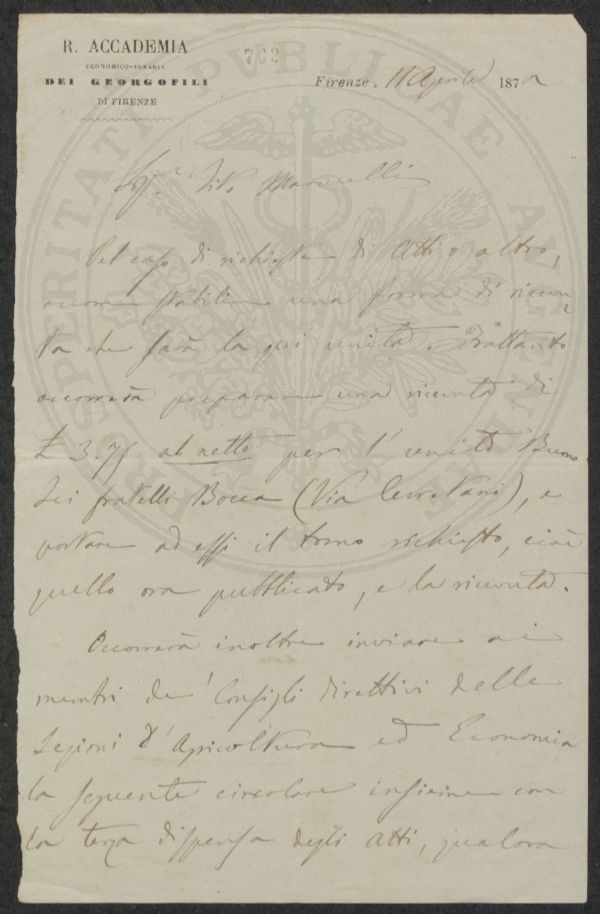 R. ACCADEMIA
ECONOMICO-AGRARIA
DEI GEORGOFILI
DI FIRENZE
762
Firenze, 11 Aprile 1872
PROSPERITATI PVBLICAE AVGENDAE
Sigr. Vito
Pel caso di richieste di Atti o altro,
occorre stabilire una forma di ricevu-
ta che sarà la qui unita. Frattanto
occorrerà preparare una ricevuta di
£ 3.75 al netto per l'unito Buono
dei fratelli Bocca (Via Cerretani), e
portare ad essi il tomo richiesto, cioè
quello ora pubblicato, e la ricevuta.
Occorrerà inoltre inviare ai
membri de' Consigli direttivi delle
Sezioni d'Agricoltura ed Economia
la seguente circolare insieme con
la terza dispensa degli Atti, qualora